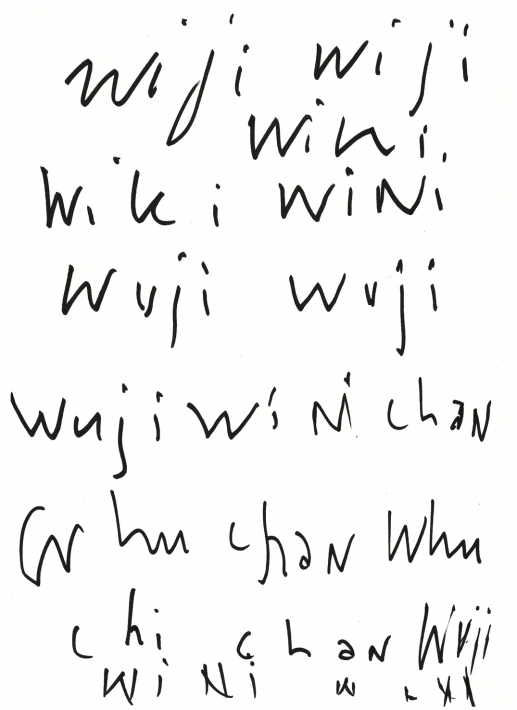 wiji wiji
wini
wiki wiNi
wuji wuji
wuji wiNi chaN
hu chaN Whu
chi chaN Wuji
wiNi